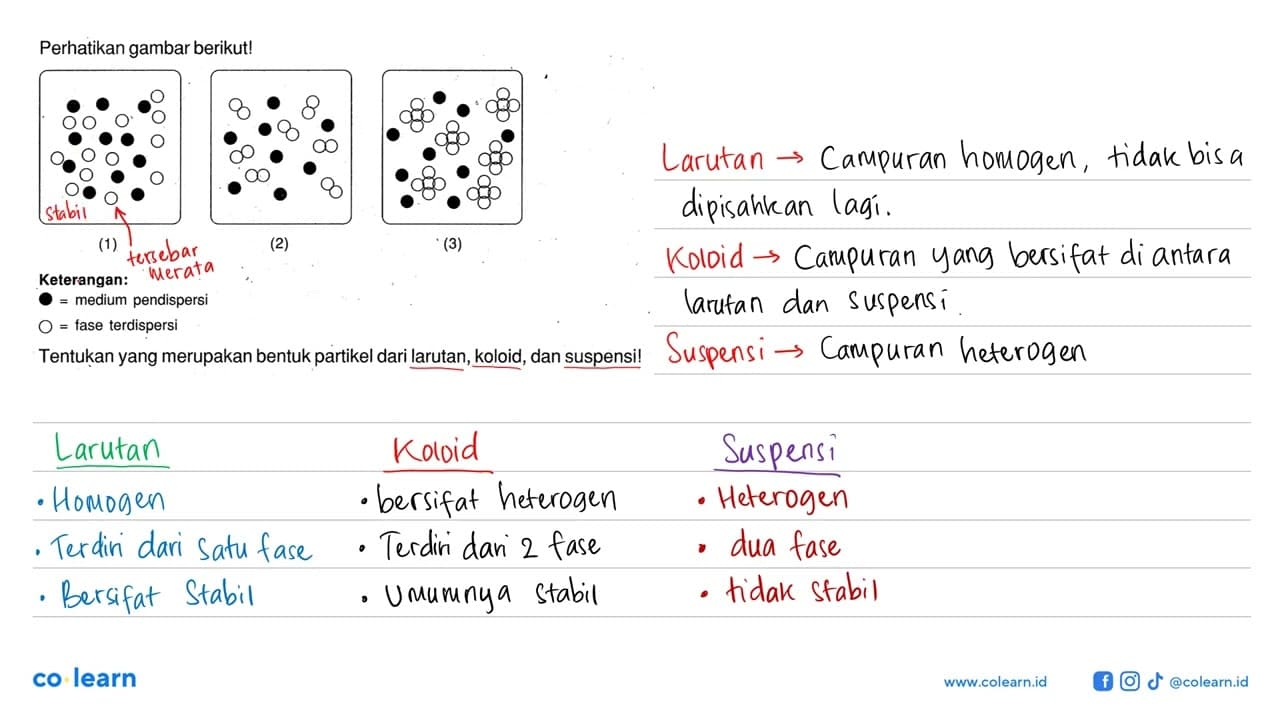 Perhatikan gambar berikut!
stabil
(1)
(2)
(3)
tersebar
merata
Keterangan:
= medium pendispersi
= fase terdispersi
Tentukan yang merupakan bentuk partikel dari larutan, koloid, dan suspensi!
Larutan → Campuran homogen, tidak bisa
dipisahkan lagi.
Koloid → Campuran yang bersifat di antara
larutan dan suspensi.
Suspensi → Campuran heterogen
Larutan
• Homogen
• Terdiri dari satu fase
• Bersifat Stabil
Koloid
• bersifat heterogen
• Terdiri dari 2 fase
• Umumnya stabil
Suspensi
• Heterogen
• dua fase
• tidak stabil
co·learn
www.colearn.id
@colearn.id